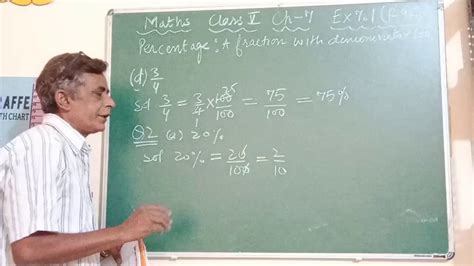 Maths Class V Ch-7 Ex 7.1
Percentage: A fraction with denominator 100
(d) 3/4
Sol 3/4 = 3/4 × 100/100 = 75/100 = 75%
Q.2 (a) 20%
Sol 20% = 20/100 = 2/10
AFFE
TH CHART